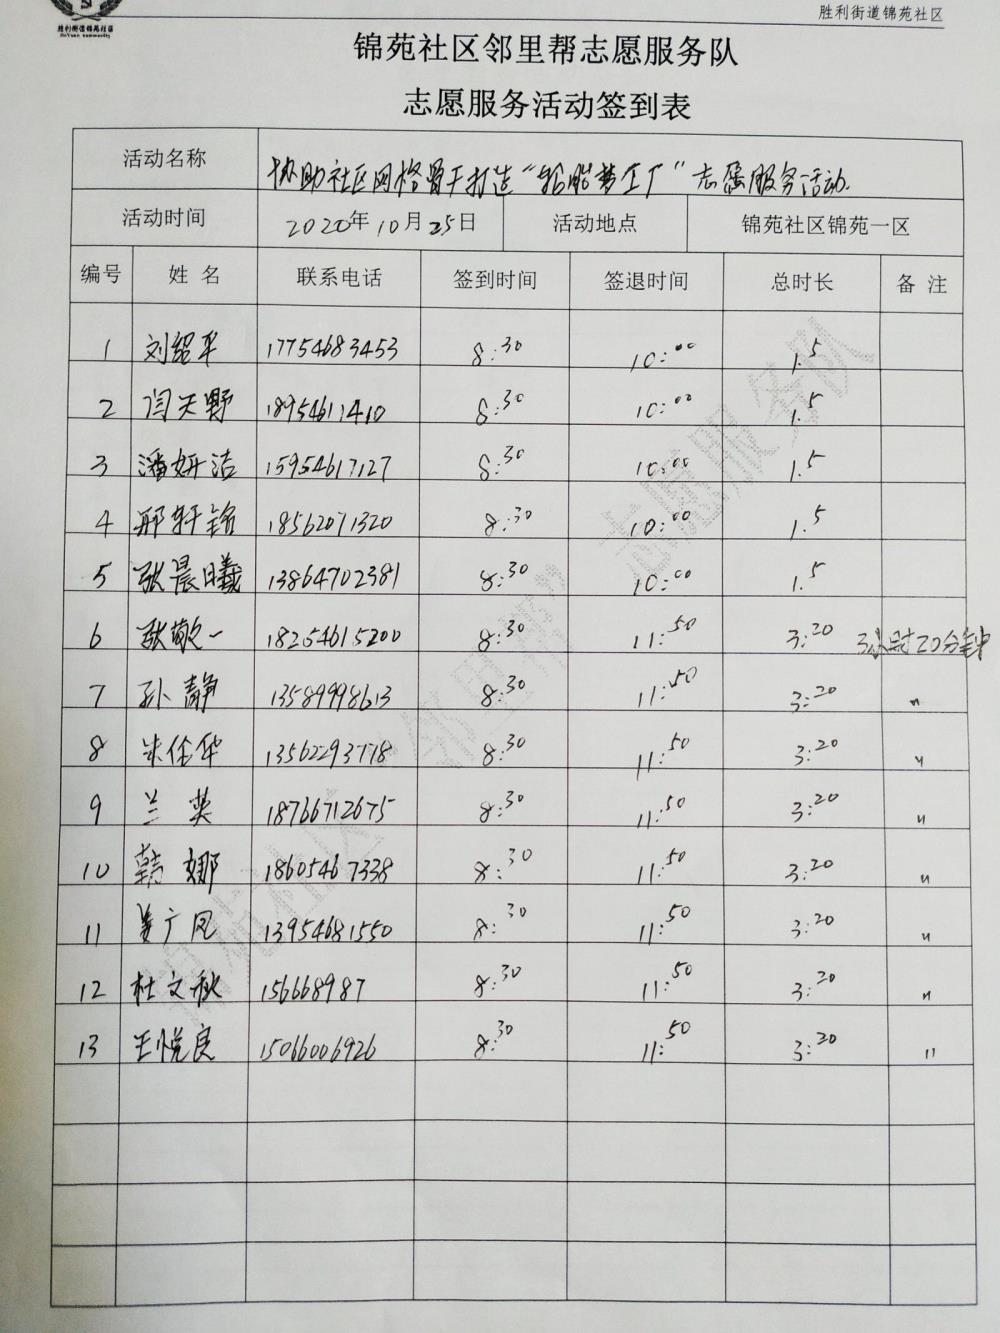 胜利街道锦苑社区
胜利街道锦苑社区
锦苑社区邻里帮志愿服务队
志愿服务活动签到表
活动名称 协助社区网格骨干打造“轮船梦工厂”志愿服务活动.
活动时间 2020年10月25日 活动地点 锦苑社区锦苑一区
编号 姓名 联系电话 签到时间 签退时间 总时长 备注
1 刘绍平 17754683453 8:30 10:00 1.5
2 闫天野 18954611410 8:30 10:00 1.5
3 潘妍洁 15954617127 8:30 10:00 1.5
4 邢轩铭 18562071320 8:30 10:00 1.5
5 张晨曦 13864702381 8:30 10:00 1.5
6 张敬一 18254615200 8:30 11:50 3:20 3小时20分钟
7 孙静 13589998613 8:30 11:50 3:20 〃
8 朱佳华 13562293778 8:30 11:50 3:20 〃
9 兰英 18766712675 8:30 11:50 3:20 〃
10 韩娜 18605467338 8:30 11:50 3:20 〃
11 姜广凤 13954681550 8:30 11:50 3:20 〃
12 杜文秋 156668987 8:30 11:50 3:20 〃
13 王悦良 15066006926 8:30 11:50 3:20 〃
锦苑社区“邻里帮”志愿服务队